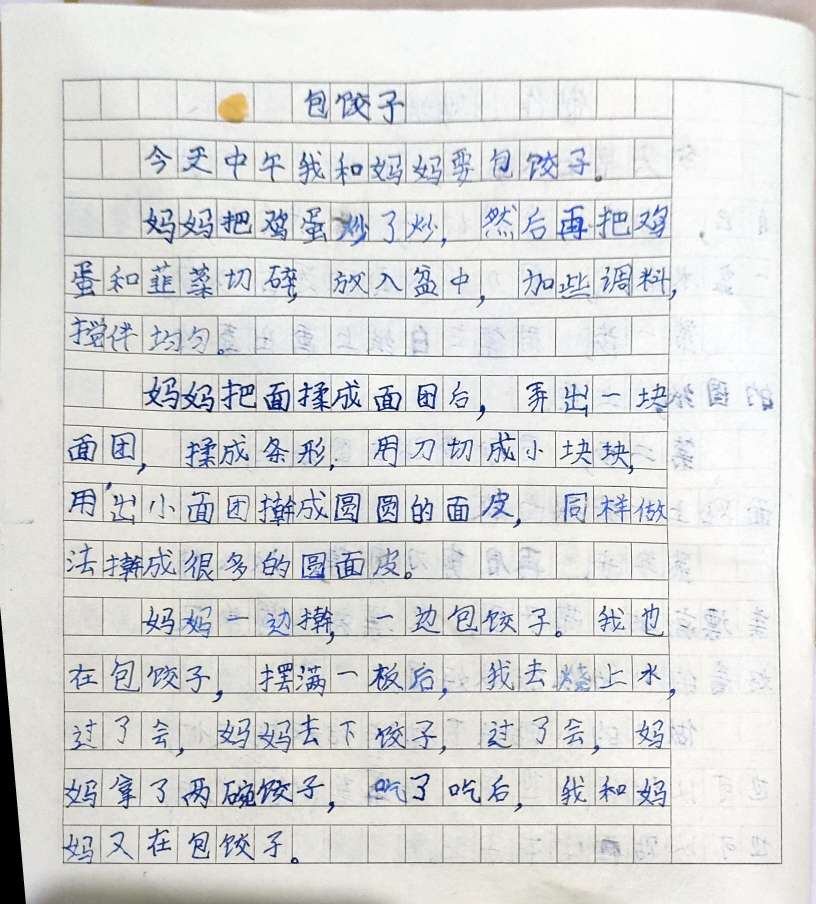 包饺子
今天中午我和妈妈要包饺子。
妈妈把鸡蛋炒了炒，然后再把鸡
蛋和韭菜切碎，放入盆中，加些调料，
搅伴均匀。
妈妈把面揉成面团后，弄出一块
面团，揉成条形，用刀切成小块块，
用出小面团擀成圆圆的面皮，同样做
法擀成很多的圆面皮。
妈妈一边擀，一边包饺子。我也
在包饺子，摆满一板后，我去烧上水，
过了会，妈妈去下饺子，过了会，妈
妈拿了两碗饺子，吃了吃后，我和妈
妈又在包饺子。